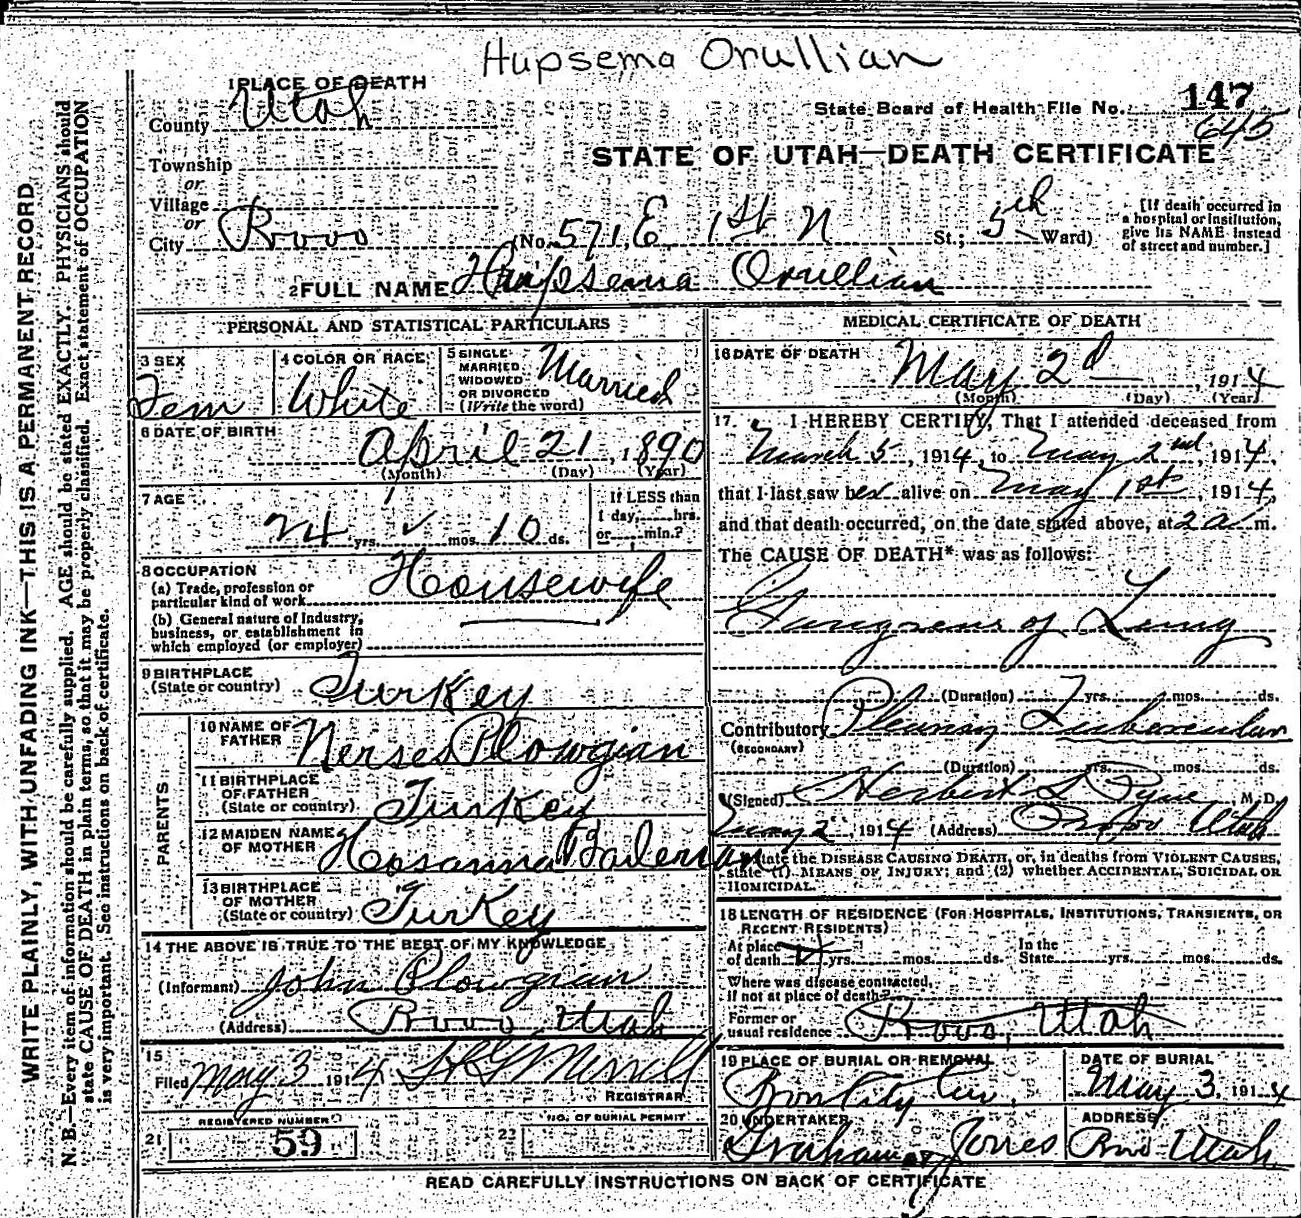 Hupsema Orullian
1 PLACE OF DEATH
County Utah
State Board of Health File No. 147
645
Township
or
Village
or
STATE OF UTAH—DEATH CERTIFICATE
City Provo (No. 571 E 1st N St.; 5th Ward)
[If death occurred in a hospital or institution, give its NAME instead of street and number.]
2 FULL NAME Hripsema Orullian
PERSONAL AND STATISTICAL PARTICULARS
3 SEX Fem
4 COLOR OR RACE White
5 SINGLE MARRIED WIDOWED OR DIVORCED (Write the word) Married
6 DATE OF BIRTH April 21, 1890
(Month) (Day) (Year)
7 AGE 24 yrs. ✓ mos. 10 ds.
If LESS than 1 day, hrs. or min.?
8 OCCUPATION
(a) Trade, profession or particular kind of work Housewife
(b) General nature of industry, business, or establishment in which employed (or employer)
9 BIRTHPLACE (State or country) Turkey
PARENTS
10 NAME OF FATHER Nerses Plowgian
11 BIRTHPLACE OF FATHER (State or country) Turkey
12 MAIDEN NAME OF MOTHER Hosanna
13 BIRTHPLACE OF MOTHER (State or country) Turkey
14 THE ABOVE IS TRUE TO THE BEST OF MY KNOWLEDGE
(Informant) John Plowgian
(Address) Provo, Utah
15 Filed May 3 1914 Merrill
REGISTRAR
REGISTERED NUMBER
21 59
NO. OF BURIAL PERMIT
22
MEDICAL CERTIFICATE OF DEATH
16 DATE OF DEATH May 2d, 1914
(Month) (Day) (Year)
17. I HEREBY CERTIFY, That I attended deceased from
March 5, 1914, to May 2nd, 1914,
that I last saw her alive on May 1st, 1914,
and that death occurred, on the date stated above, at 2 a m.
The CAUSE OF DEATH* was as follows:
Gangrene of Lung
(Duration) yrs. mos. ds.
Contributory Pleurisy Tubercular
(SECONDARY)
(Duration) yrs. mos. ds.
(Signed) Herbert S Pyne M. D.
May 2, 1914 (Address) Provo Utah
State the DISEASE CAUSING DEATH, or, in deaths from VIOLENT CAUSES, state (1) MEANS OF INJURY; and (2) whether ACCIDENTAL, SUICIDAL OR HOMICIDAL.
18 LENGTH OF RESIDENCE (FOR HOSPITALS, INSTITUTIONS, TRANSIENTS, OR RECENT RESIDENTS)
At place of death 4 yrs. mos. ds. In the State yrs. mos. ds.
Where was disease contracted, if not at place of death?
Former or usual residence Provo, Utah
19 PLACE OF BURIAL OR REMOVAL Provo City Cem.
DATE OF BURIAL May 3, 1914
20 UNDERTAKER Graham & Jones
ADDRESS Provo Utah
READ CAREFULLY INSTRUCTIONS ON BACK OF CERTIFICATE
WRITE PLAINLY, WITH UNFADING INK—THIS IS A PERMANENT RECORD.
N. B.—Every item of information should be carefully supplied. AGE should be stated EXACTLY. PHYSICIANS should
state CAUSE OF DEATH in plain terms, so that it may be properly classified. Exact statement of OCCUPATION
is very important. See instructions on back of certificate.